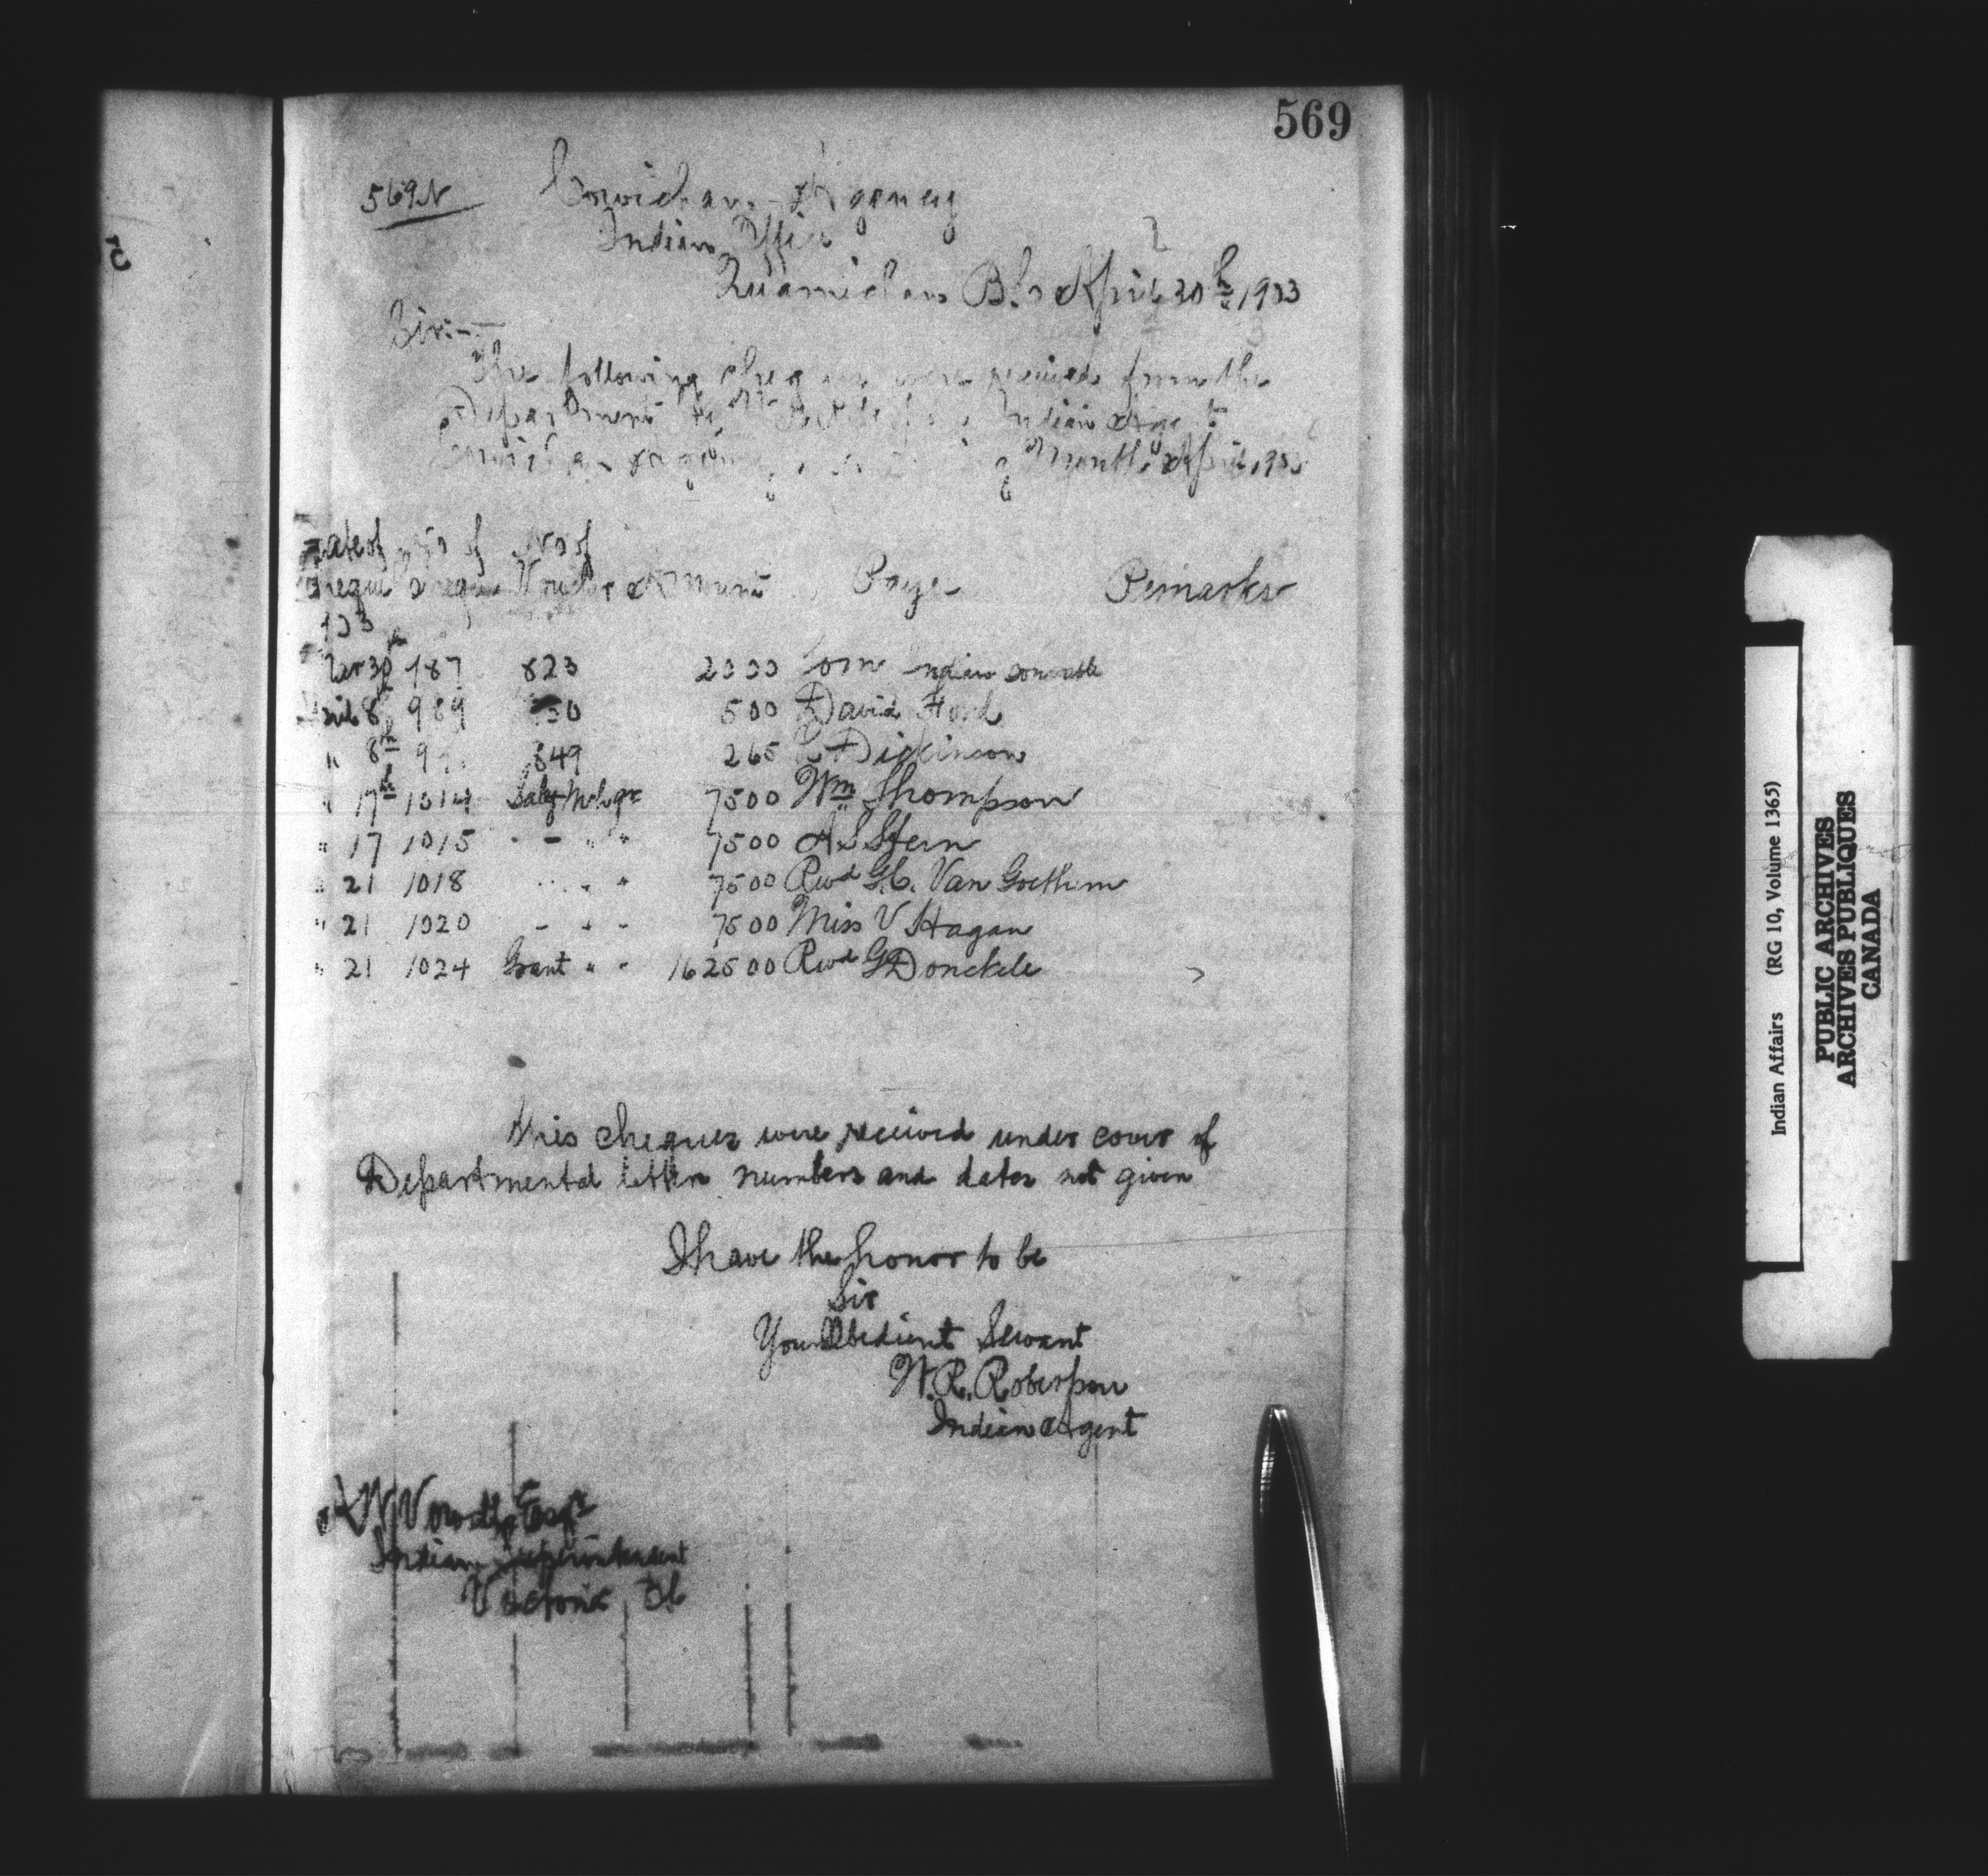 569
569N Cowichan Agency
Indian Office
Quamichan B.C. April 30th 1903
Sir:-
The following cheques were received from the
Department Indian Agent
Cowichan Agency Month April 1903
Date of No of No of
Cheque Cheque Voucher Amount Payee Remarks
30th 187 823 2000 Tom Indian Constable
April 8th 989 50 500 David Ford
" 8th 849 265 Dickinson
" 17th 1014 7500 Wm Thompson
" 17 1015 - - " " 7500 A.S Stern
" 21 1018 " " " 7500 Revd G.C. Van Goethem
" 21 1020 - - - 7500 Miss V Hagan
" 21 1024 Grant " " 162500 Revd G Donckele
This cheques were received under cover of
Departmental letter numbers and dates not given
I have the honor to be
Sir
Your Obedient Servant
W. R. Robertson
Indian Agent
A W Vowell Esqre
Indian Superintendent
Victoria BC
Indian Affairs (RG 10, Volume 1365)
PUBLIC ARCHIVES
ARCHIVES PUBLIQUES
CANADA